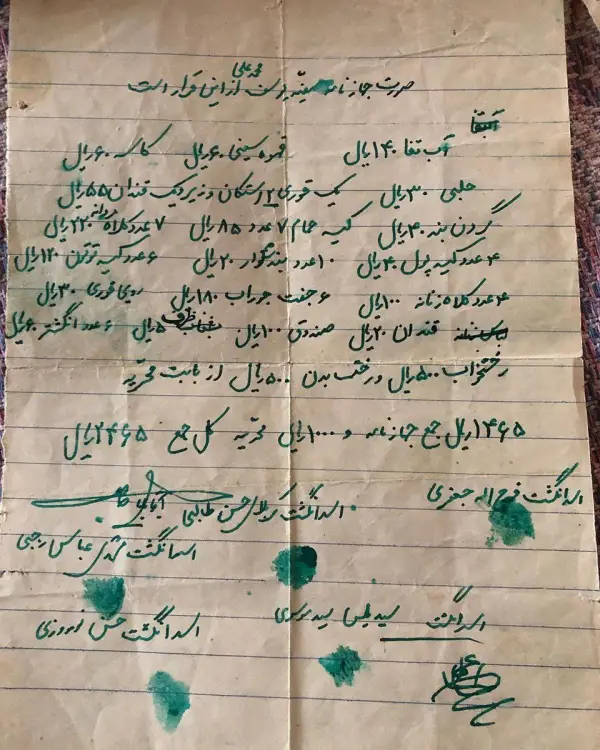 محمد علی
صورت جهازنامه سکینه دوست از این قرار است
آبتفا
آب تفا ۱۴۰ ریال قهوه سینی ۶۰ ریال کاسه ۶۰ ریال
حلبی ۳۰ ریال یک قوری ۲ استکان و زیر و یک قندان ۵۵ ریال
گردن بند ۴۰ ریال کیسه حمام ۷ عدد ۸۵ ریال ۷ عدد کلاه مردانه ۲۲۰ ریال
۴ عدد کیسه پول ۴۰ ریال ۱۰ عدد بند شلوار ۲۰ ریال ۶ عدد کیسه توتون ۱۲۰ ریال
۴ عدد کلاه زنانه ۱۰۰ ریال ۶ جفت جوراب ۱۸۰ ریال روی قوری ۳۰ ریال
قندان ۲۰ ریال صندوق ۱۰۰ ریال ظرف ۵ ریال ۶ عدد انگشتر ۶۰ ریال
رختخواب ۵۰۰ ریال و رخت بدن ۵۰۰ ریال از بابت مهریه
۱۴۶۵ ریال جمع جهازنامه و ۱۰۰۰ ریال مهریه کل جمع ۲۴۶۵ ریال
اثر انگشت فرج اله جعفری
اثر انگشت کربلائی حسن طالبی
اثر انگشت مشهدی عباس رجبی
اثر انگشت سید
اثر انگشت حسن نوروزی